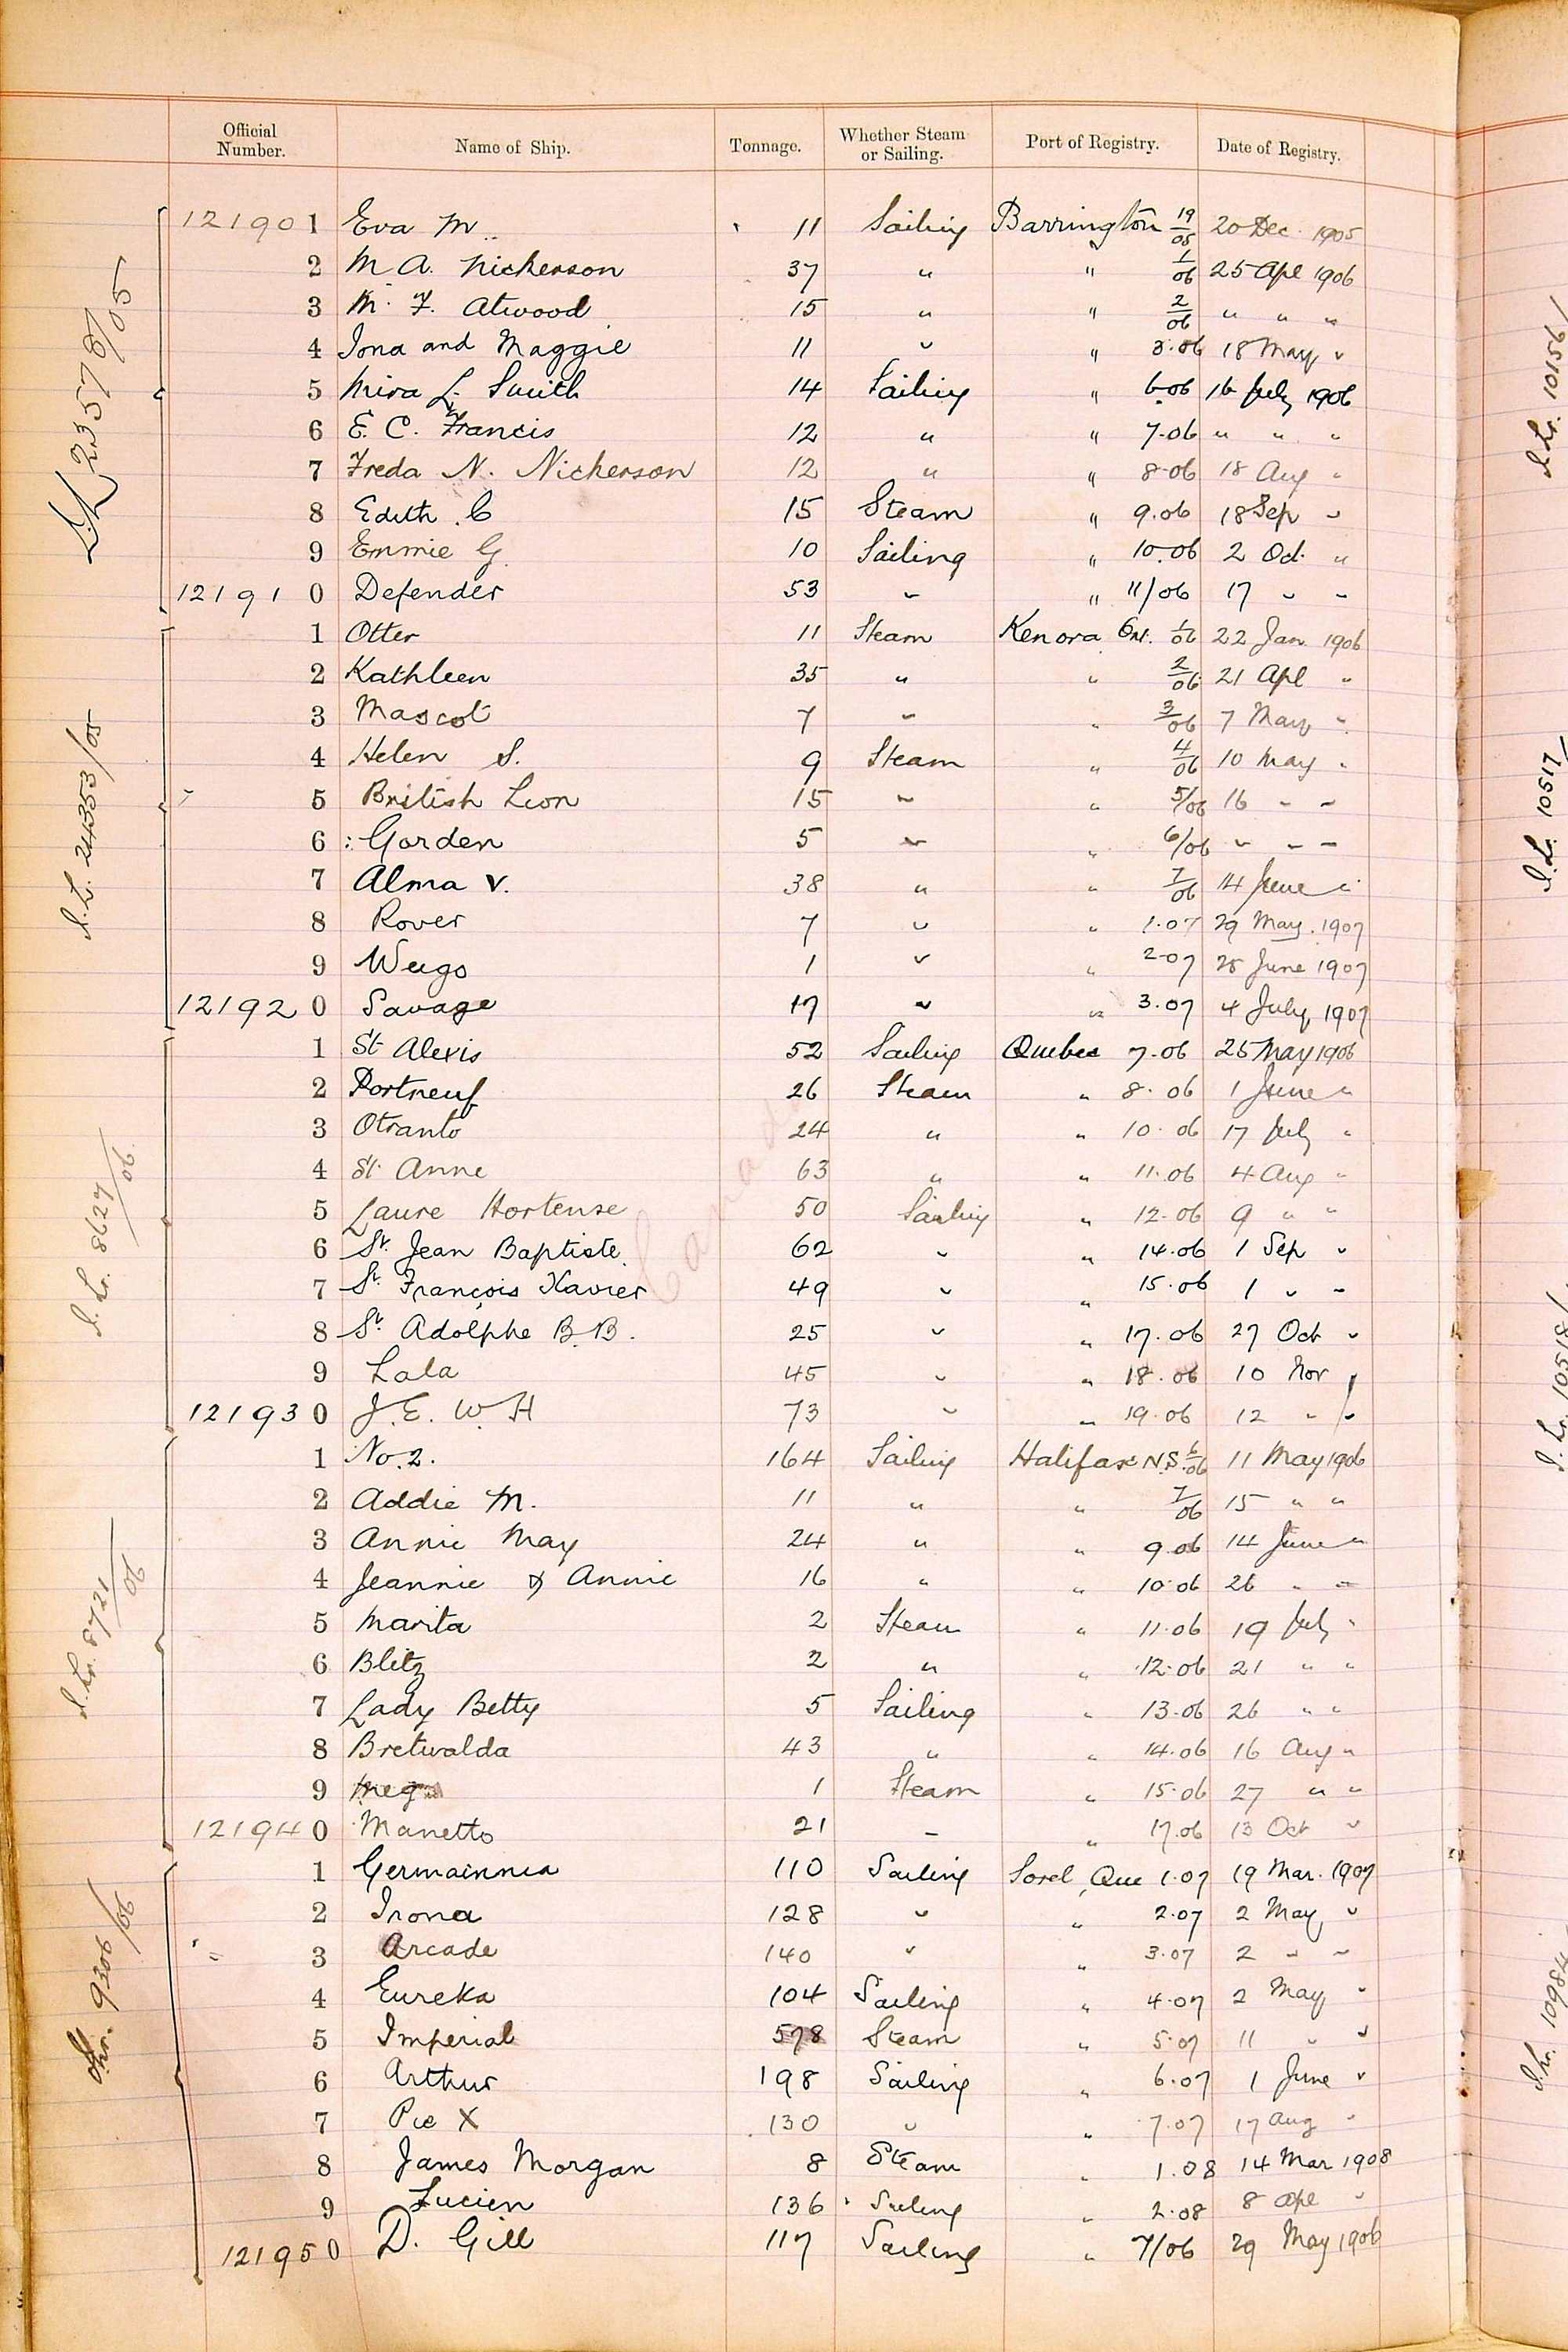 Official Number. Name of Ship. Tonnage. Whether Steam or Sailing. Port of Registry. Date of Registry.
121901 Eva M. 11 Sailing Barrington 19/05 20 Dec. 1905
2 M A. Nickerson 37 " " 1/06 25 Apl 1906
3 M. F. Atwood 15 " " 2/06 " " "
4 Iona and Maggie 11 " " 3.06 18 May "
5 Mira L. Smith 14 Sailing " 6.06 16 July 1906
6 E. C. Francis 12 " " 7.06 " " "
7 Freda N. Nickerson 12 " " 8.06 18 Aug "
8 Edith C 15 Steam " 9.06 18 Sep "
9 Emmie G. 10 Sailing " 10.06 2 Oct. "
121910 Defender 53 " " 11/06 17 " "
1 Otter 11 Steam Kenora Ont. 1/06 22 Jan 1906
2 Kathleen 35 " " 2/06 21 Apl "
3 Mascot 7 " " 3/06 7 May "
4 Helen S. 9 Steam " 4/06 10 May "
5 British Lion 15 " " 5/06 16 " "
6 Gorden 5 " " 6/06 " " "
7 Alma V. 38 " " 7/06 14 June "
8 Rover 7 " " 1.07 29 May. 1907
9 Wego 1 " " 2.07 25 June 1907
121920 Savage 17 " " 3.07 4 July, 1907
1 St Alexis 52 Sailing Quebec 7.06 25 May 1906
2 Portneuf 26 Steam " 8.06 1 June "
3 Otranto 24 " " 10.06 17 July "
4 St. Anne 63 " " 11.06 4 Aug "
5 Laure Hortense 50 Sailing " 12.06 9 " "
6 St. Jean Baptiste 62 " " 14.06 1 Sep "
7 St. François Xavier 49 " " 15.06 1 " "
8 St. Adolphe B.B. 25 " " 17.06 27 Oct "
9 Lala 45 " " 18.06 10 Nov "
121930 J. E. W. H 73 " " 19.06 12 " "
1 No. 2. 164 Sailing Halifax N.S. 6/06 11 May 1906
2 Addie M. 11 " " 7/06 15 " "
3 Annie May 24 " " 9.06 14 June "
4 Jeannie & Annie 16 " " 10.06 26 " "
5 Marita 2 Steam " 11.06 19 July "
6 Blitz 2 " " 12.06 21 " "
7 Lady Betty 5 Sailing " 13.06 26 " "
8 Bretwalda 43 " " 14.06 16 Aug "
9 Meg 1 Steam " 15.06 27 " "
121940 Manetto 21 " " 17.06 13 Oct "
1 Germainnia 110 Sailing Sorel, Que 1.07 19 Mar. 1907
2 Irona 128 " " 2.07 2 May "
3 Arcade 140 " " 3.07 2 " "
4 Eureka 104 Sailing " 4.07 2 May "
5 Imperial 578 Steam " 5.07 11 " "
6 Arthur 198 Sailing " 6.07 1 June "
7 Pie X 130 " " 7.07 17 Aug "
8 James Morgan 8 Steam " 1.08 14 Mar 1908
9 Lucien 136 Sailing " 2.08 8 Apl "
121950 D. Gill 117 Sailing " 7/06 29 May 1906
S.L. 24353/05
S. Lr. 8627/06
S. Lr. 8721/06
9306/06
Canada
S. Lr. 10156/
S. Lr. 10517/
S. Lr. 10518/
S. Lr. 10984